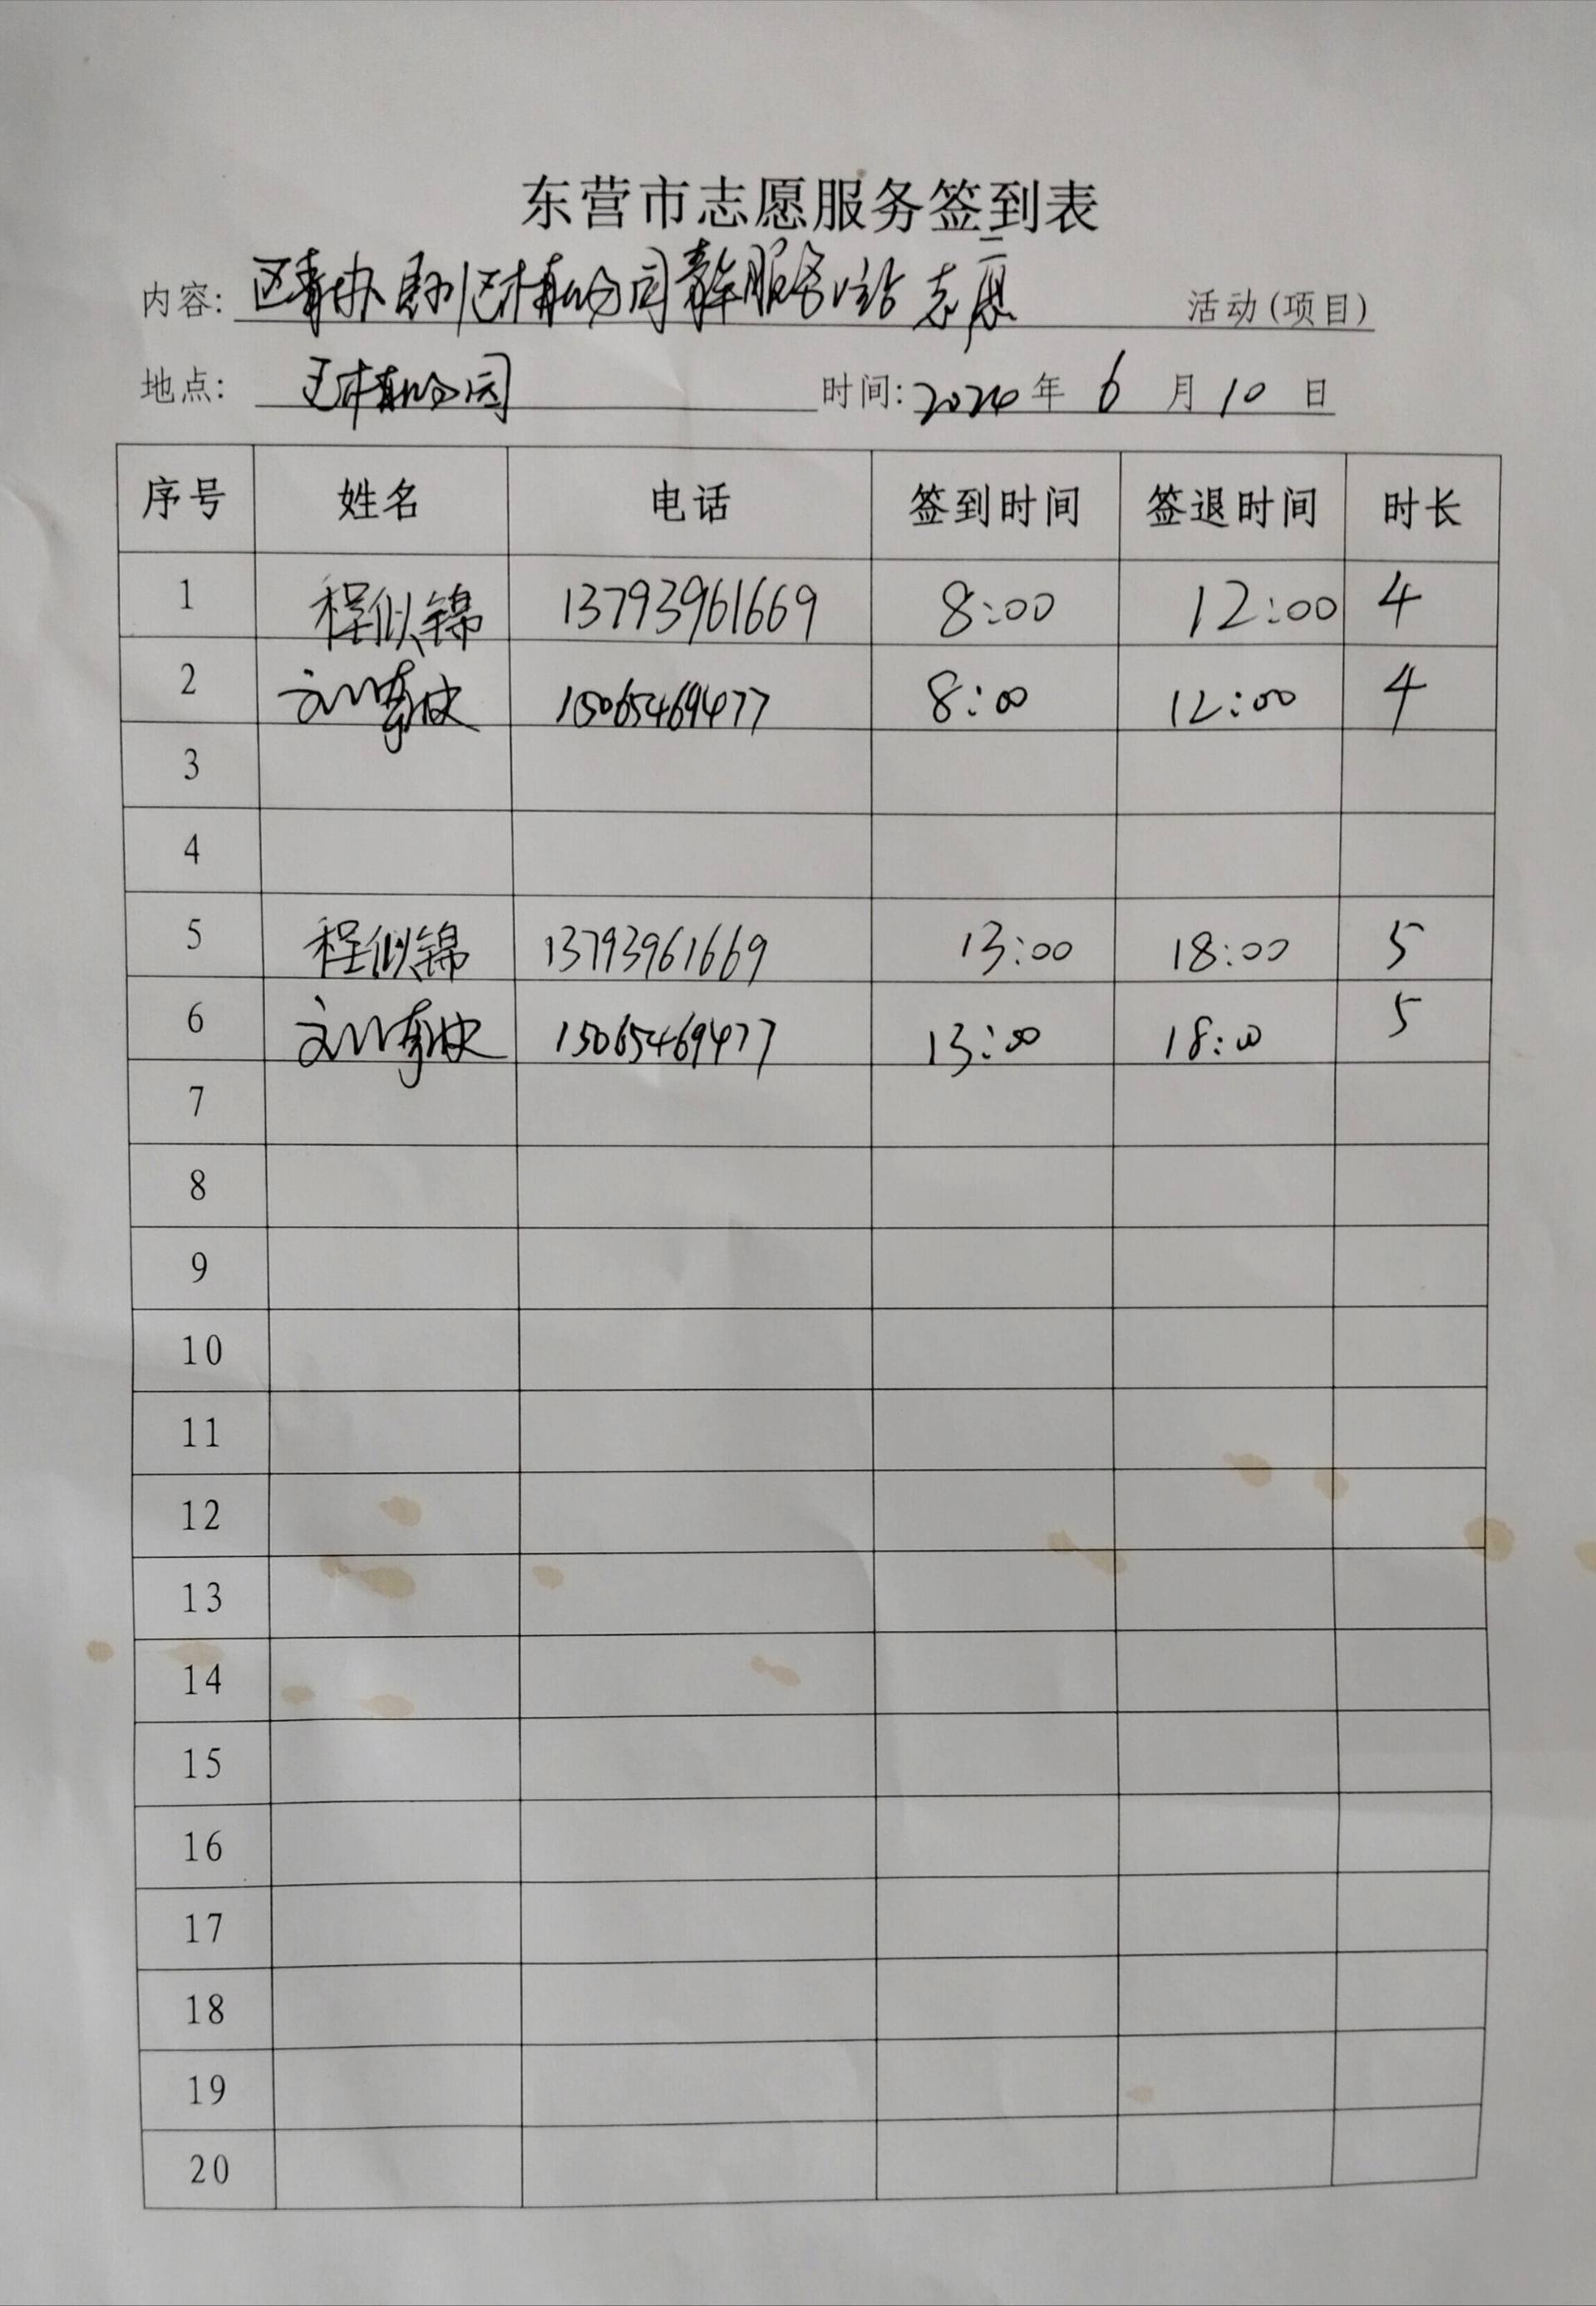 东营市志愿服务签到表
内容: 区青协 植物园 服务站 志愿 活动(项目)
地点: 植物园 时间: 2024 年 6 月 10 日
序号 姓名 电话 签到时间 签退时间 时长
1 程似锦 13793961669 8:00 12:00 4
2 15065469477 8:00 12:00 4
3
4
5 程似锦 13793961669 13:00 18:00 5
6 15065469477 13:00 18:00 5
7
8
9
10
11
12
13
14
15
16
17
18
19
20